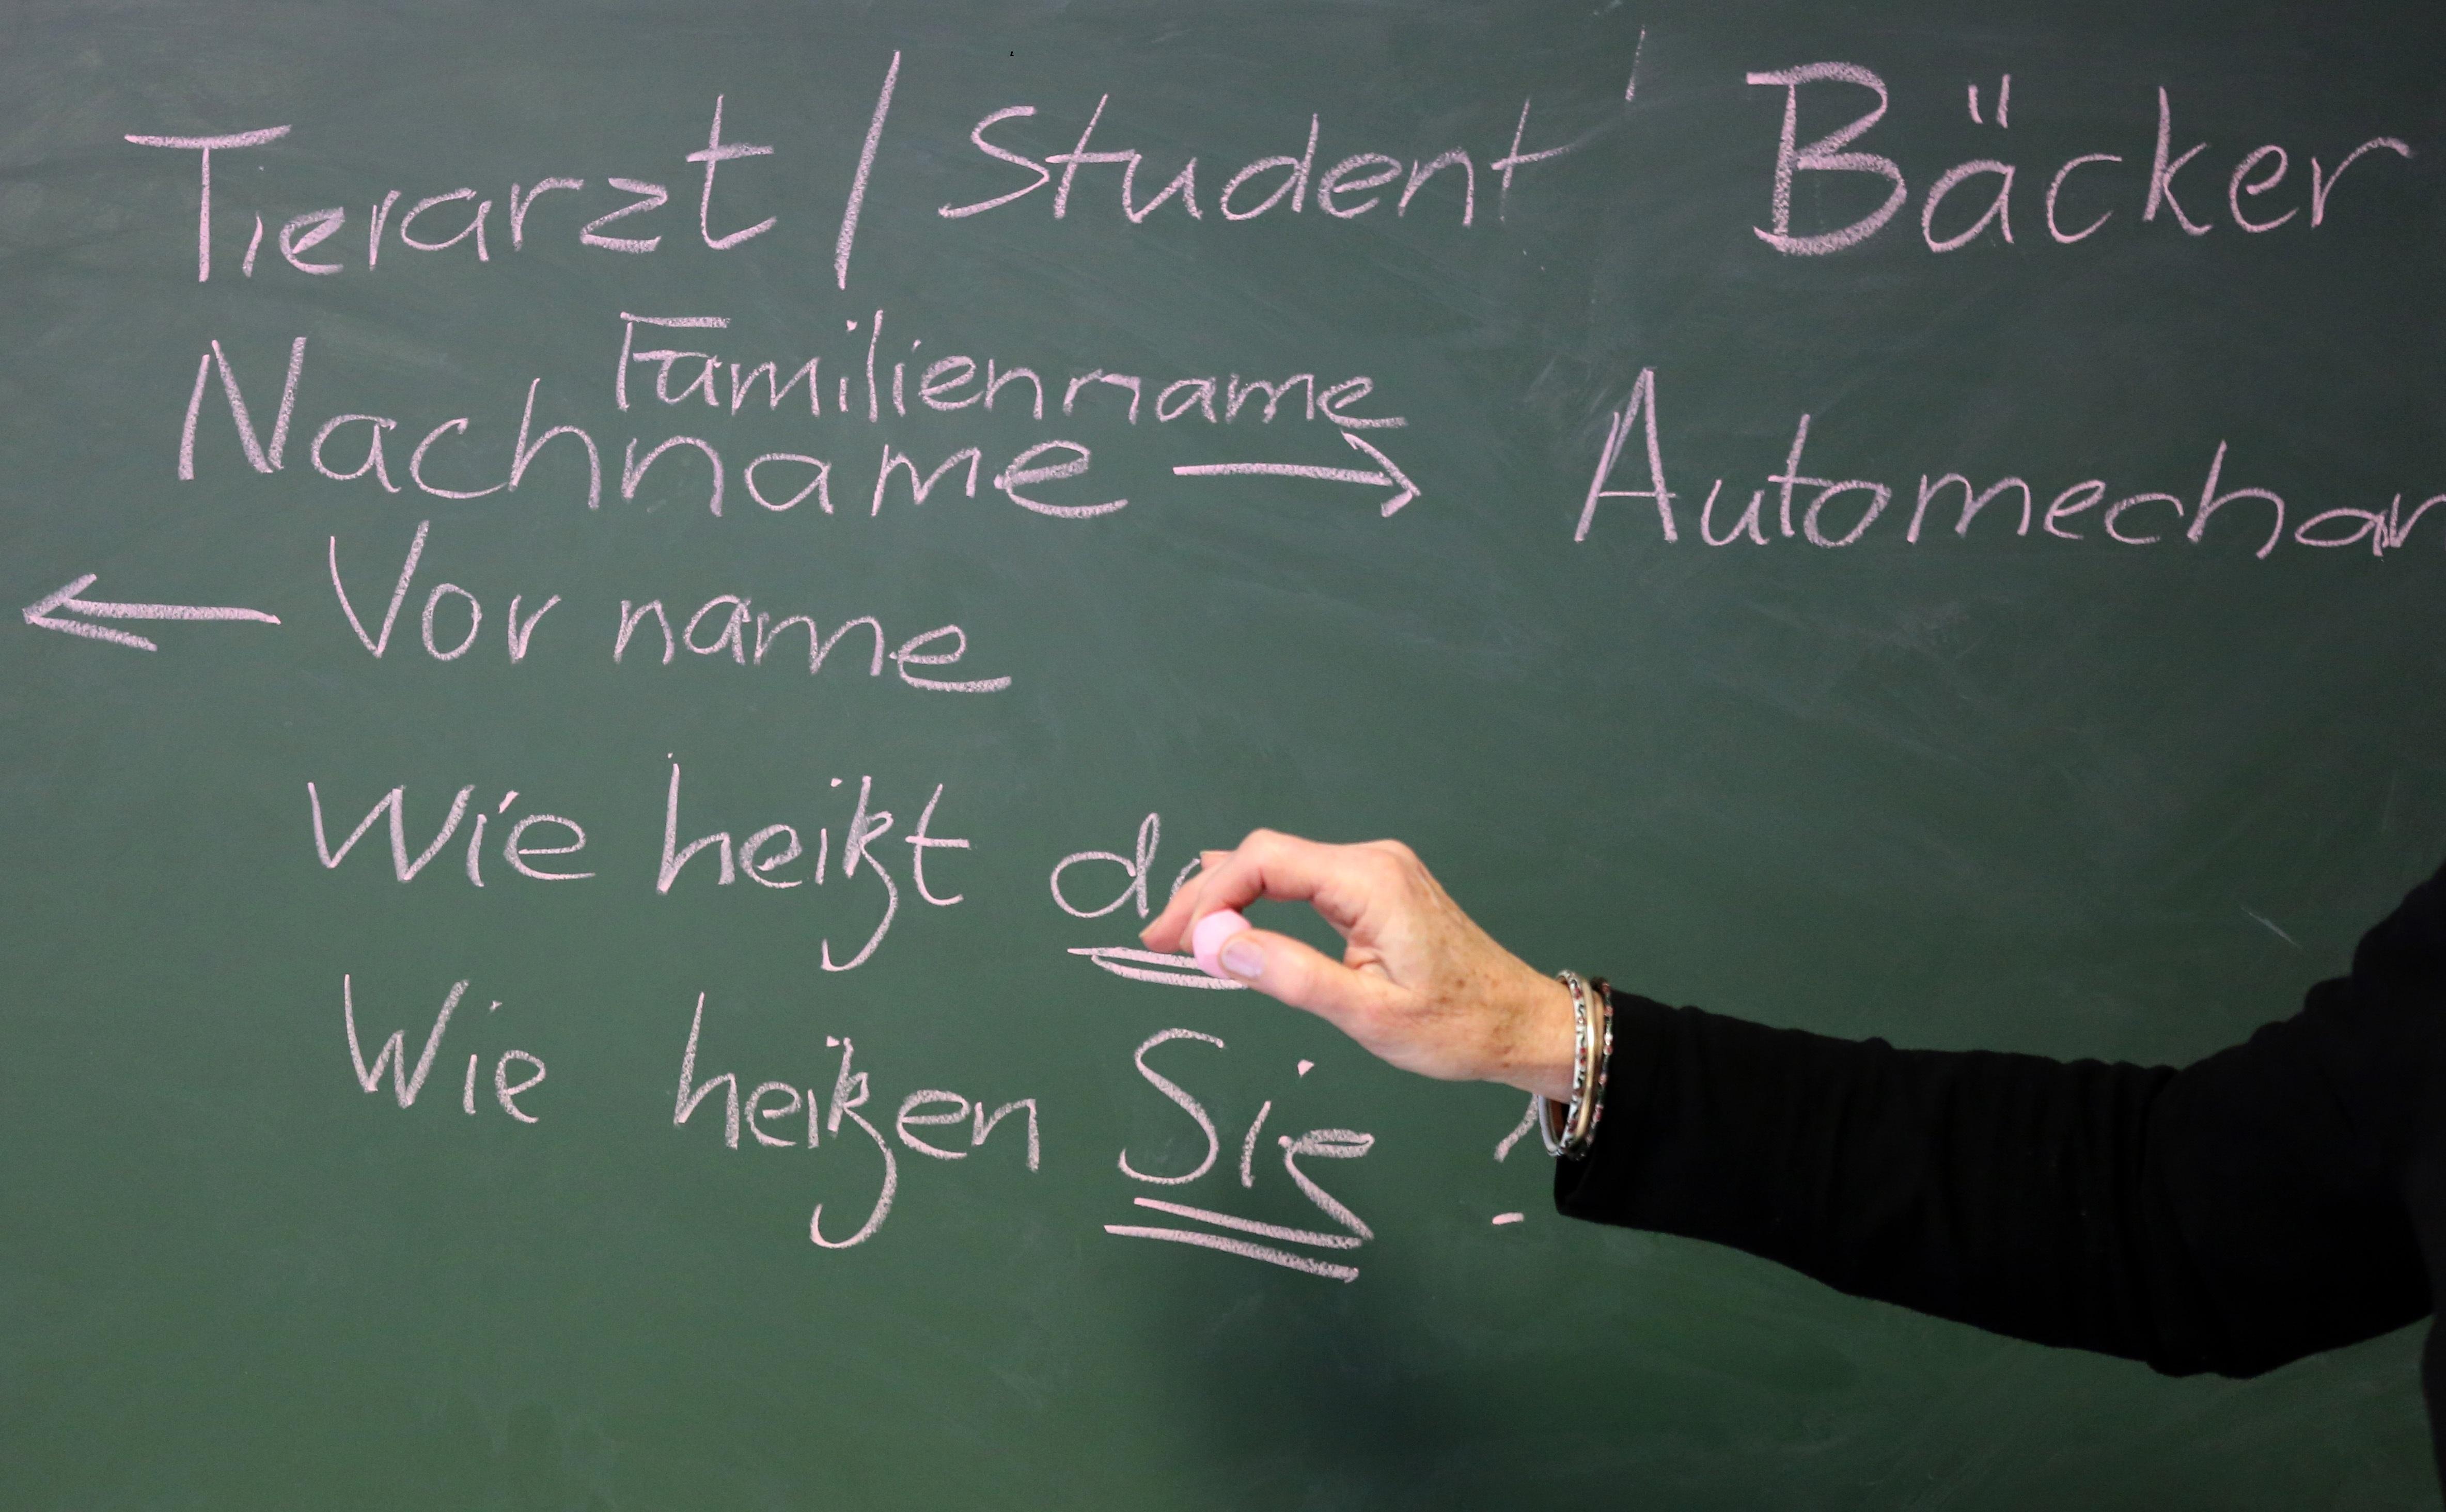 Tierarzt / Student Bäcker
Familienname
Nachname → Automechan
← Vorname
Wie heißt
Wie heißen Sie ?